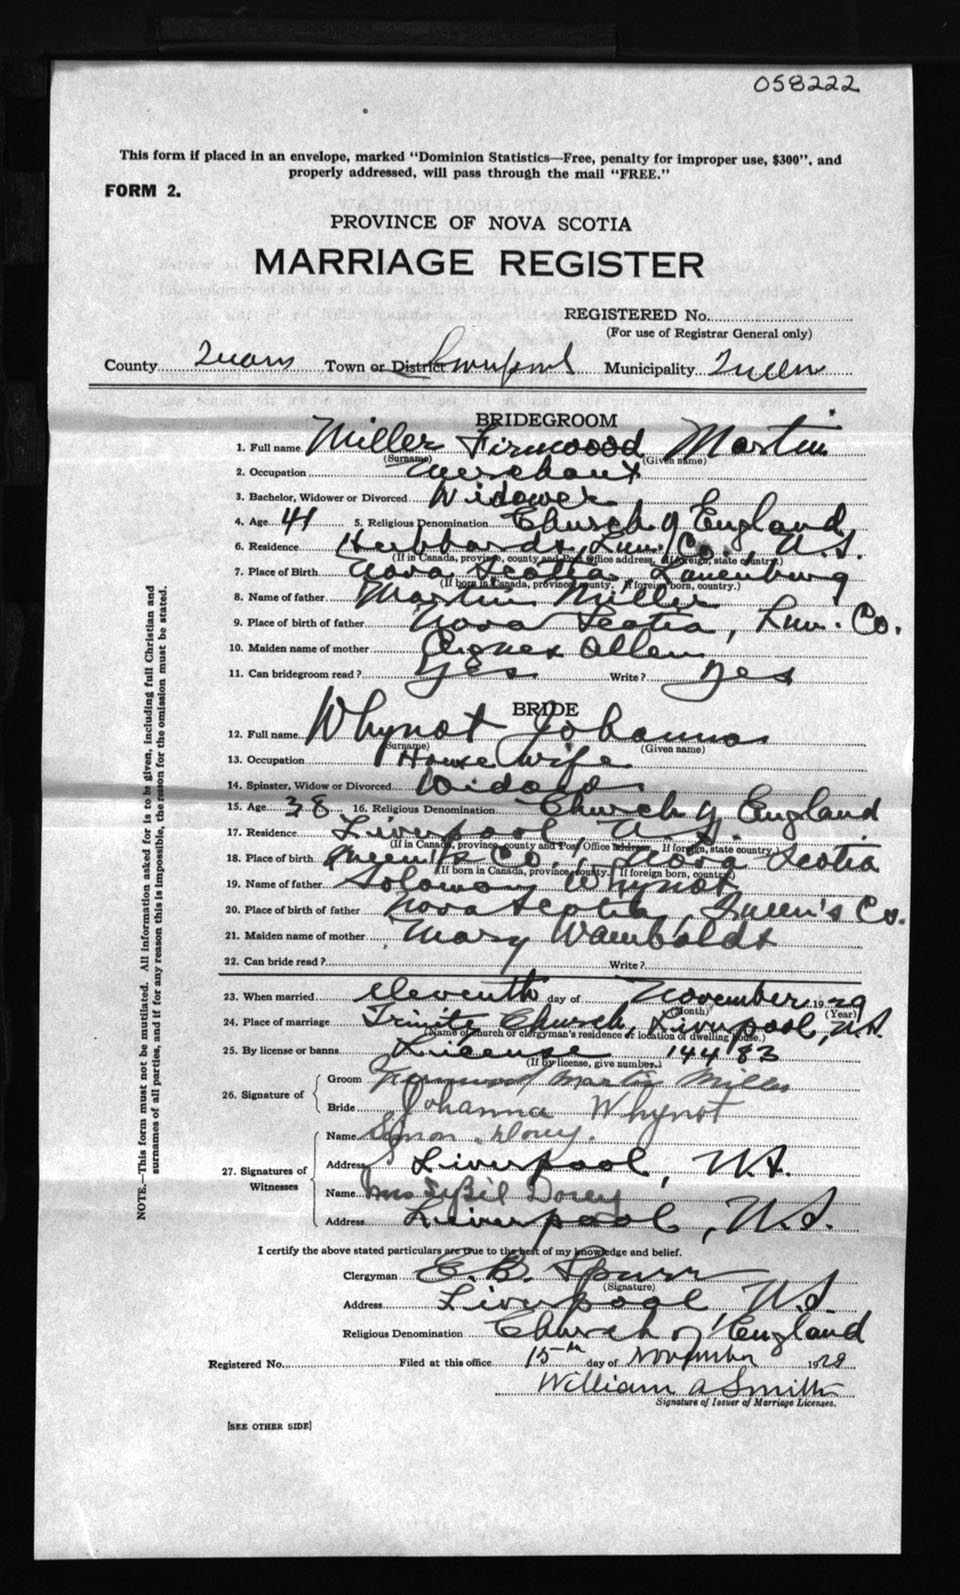 058222
This form if placed in an envelope, marked "Dominion Statistics—Free, penalty for improper use, $300", and
properly addressed, will pass through the mail "FREE."
FORM 2.
PROVINCE OF NOVA SCOTIA
MARRIAGE REGISTER
REGISTERED No.
(For use of Registrar General only)
County Town or District Liverpool Municipality Queens
BRIDEGROOM
1. Full name Miller Firmwood Martin
(Surname) (Given name)
2. Occupation Merchant
3. Bachelor, Widower or Divorced Widower
4. Age 41 5. Religious Denomination Church of England
6. Residence Hubbards, Lun. Co., N.S.
(If in Canada, province, county and Post Office address. If foreign, state country.)
7. Place of Birth Nova Scotia. Lunenburg
(If born in Canada, province, county. If foreign born, country.)
8. Name of father Martin Miller
9. Place of birth of father Nova Scotia, Lun. Co.
10. Maiden name of mother Agnes Allen
11. Can bridegroom read? Yes Write? Yes
BRIDE
12. Full name Whynot Johanna
(Surname) (Given name)
13. Occupation House wife
14. Spinster, Widow or Divorced Widow
15. Age 38 16. Religious Denomination Church of England
17. Residence Liverpool, N.S.
(If in Canada, province, county and Post Office address. If foreign, state country.)
18. Place of birth Queen's Co., Nova Scotia
(If born in Canada, province, county. If foreign born, country.)
19. Name of father Solomon Whynot
20. Place of birth of father Nova Scotia, Queen's Co.
21. Maiden name of mother Mary Wamboldt
22. Can bride read? Write?
23. When married eleventh day of November 1929
(Month) (Year)
24. Place of marriage Trinity Church, Liverpool, N.S.
(Name of church or clergyman's residence or location of dwelling house.)
25. By license or banns License 144183
(If by license, give number.)
26. Signature of
Groom Firmwood Martin Miller
Bride Johanna Whynot
27. Signatures of Witnesses
Name Simon Dorey.
Address Liverpool, N.S.
Name Mrs Sybil Dorey
Address Liverpool, N.S.
I certify the above stated particulars are true to the best of my knowledge and belief.
Clergyman E. B. Spurr
(Signature)
Address Liverpool, N.S.
Religious Denomination Church of England
Registered No. Filed at this office 15th day of November 1929
William A Smith
Signature of Issuer of Marriage Licenses.
[SEE OTHER SIDE]
NOTE.—This form must not be mutilated. All information asked for is to be given, including full Christian and
surnames of all parties, and if for any reason this is impossible, the reason for the omission must be stated.